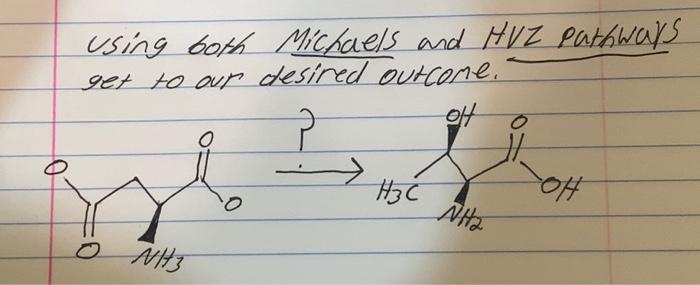 using both Michaels and HVZ pathways
get to our desired outcome.
?
OH
O
O
O
H3C
OH
O
NH2
O
NH3